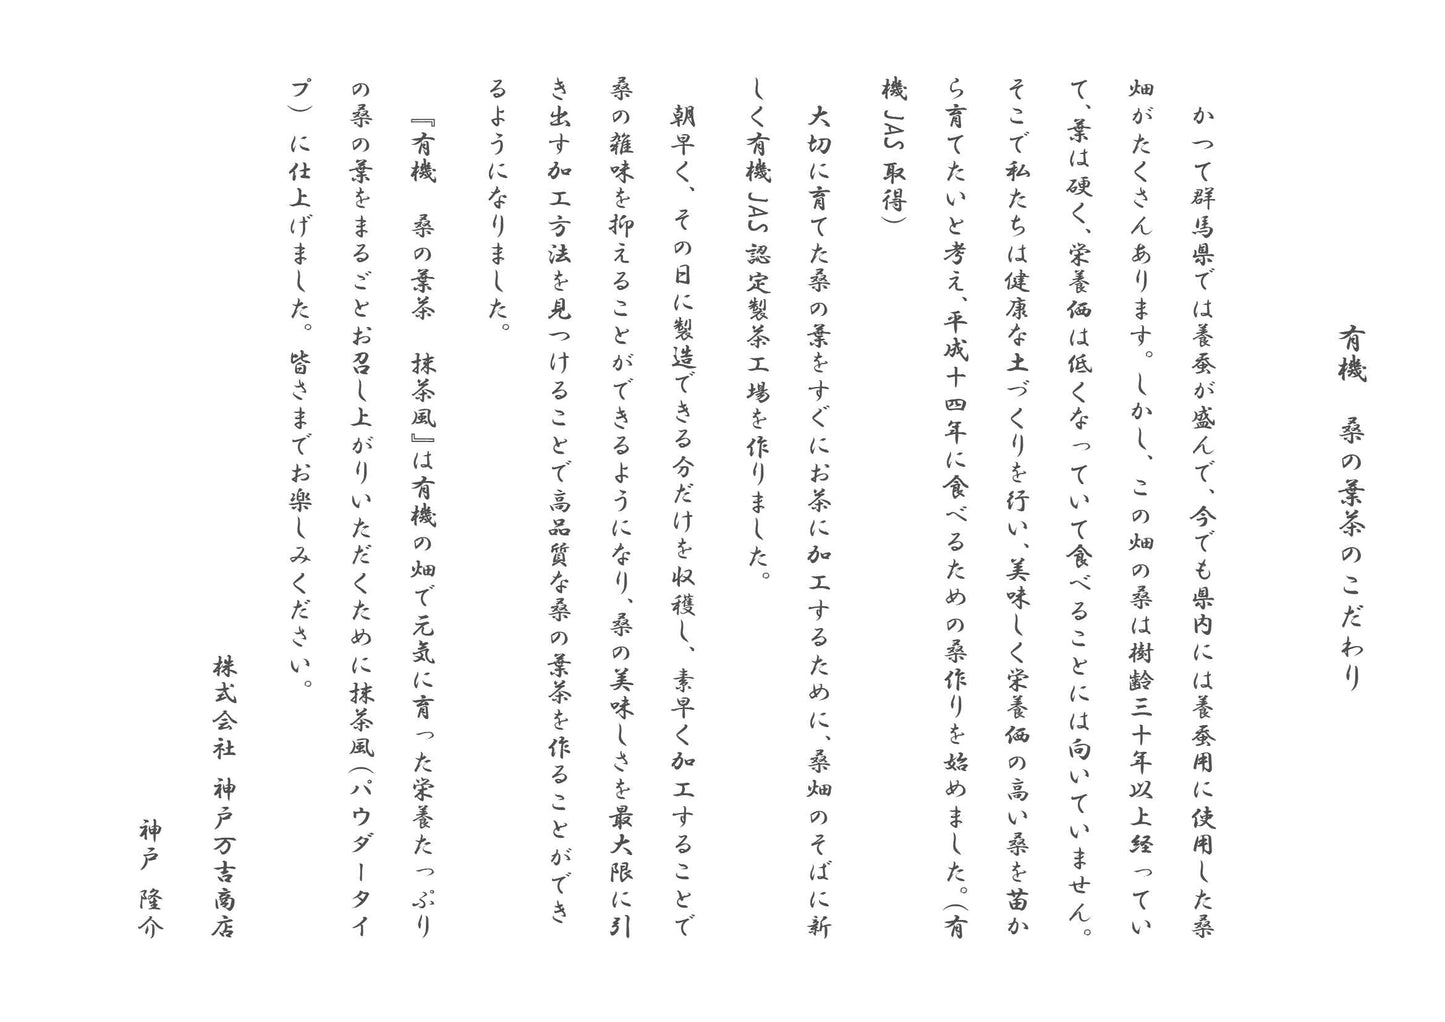 有機　桑の葉茶のこだわり
かつて群馬県では養蚕が盛んで、今でも県内には養蚕用に使用した桑
畑がたくさんあります。しかし、この畑の桑は樹齢三十年以上経ってい
て、葉は硬く、栄養価は低くなっていて食べることには向いていません。
そこで私たちは健康な土づくりを行い、美味しく栄養価の高い桑を苗か
ら育てたいと考え、平成十四年に食べるための桑作りを始めました。（有
機JAS取得）
大切に育てた桑の葉をすぐにお茶に加工するために、桑畑のそばに新
しく有機JAS認定製茶工場を作りました。
朝早く、その日に製造できる分だけを収穫し、素早く加工することで
桑の雑味を抑えることができるようになり、桑の美味しさを最大限に引
き出す加工方法を見つけることで高品質な桑の葉茶を作ることができ
るようになりました。
『有機　桑の葉茶　抹茶風』は有機の畑で元気に育った栄養たっぷり
の桑の葉をまるごとお召し上がりいただくために抹茶風（パウダータイ
プ）に仕上げました。皆さまでお楽しみください。
株式会社 神戸万吉商店
神戸 隆介